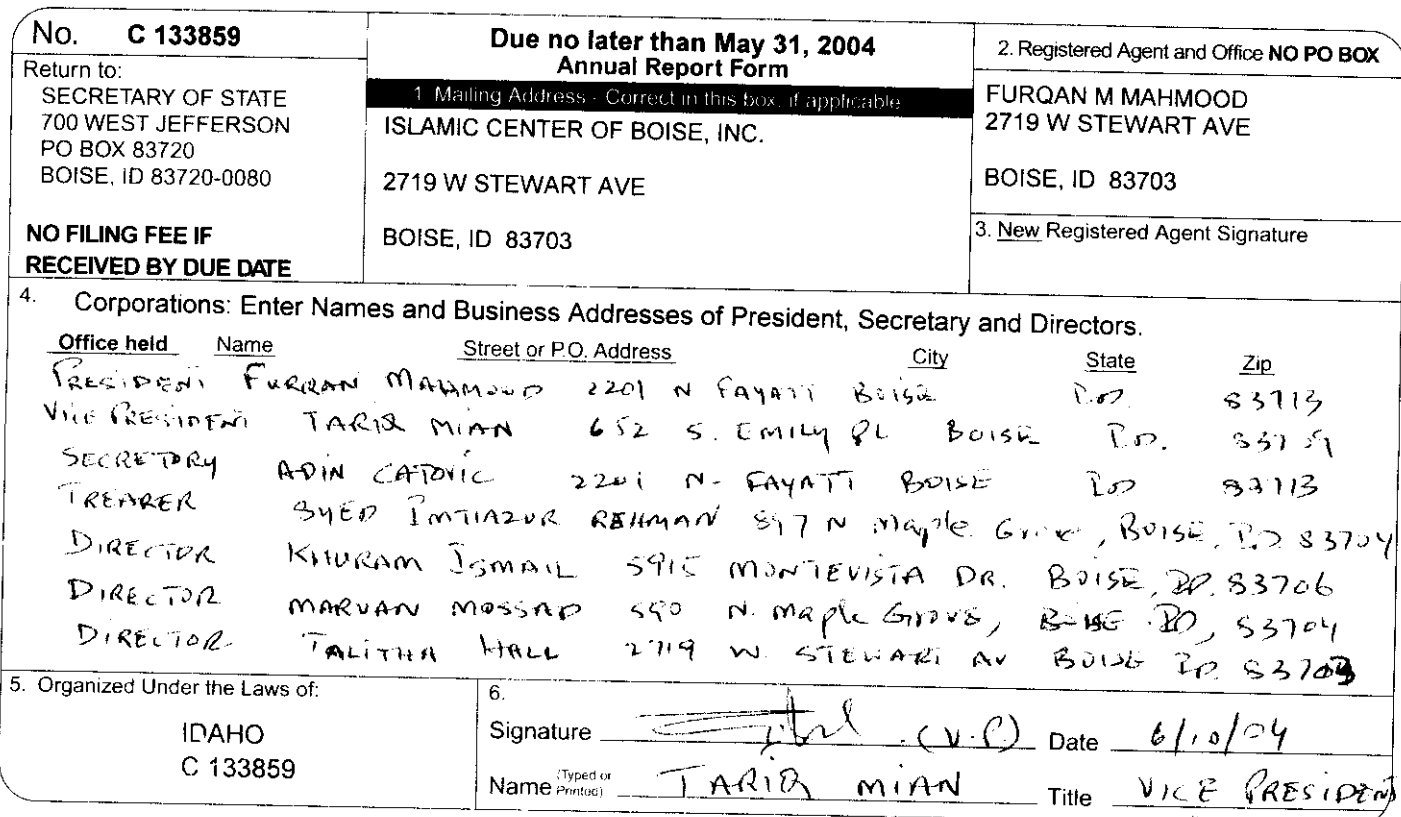 No. C 133859
Return to:
SECRETARY OF STATE
700 WEST JEFFERSON
PO BOX 83720
BOISE, ID 83720-0080
NO FILING FEE IF
RECEIVED BY DUE DATE
Due no later than May 31, 2004
Annual Report Form
1. Mailing Address - Correct in this box, if applicable
ISLAMIC CENTER OF BOISE, INC.
2719 W STEWART AVE
BOISE, ID 83703
2. Registered Agent and Office NO PO BOX
FURQAN M MAHMOOD
2719 W STEWART AVE
BOISE, ID 83703
3. New Registered Agent Signature
4. Corporations: Enter Names and Business Addresses of President, Secretary and Directors.
Office held Name Street or P.O. Address City State Zip
PRESIDENT FURQAN MAHMOOD 2201 N FAYATT BOISE ID. 83713
VICE PRESIDENT TARIQ MIAN 652 S. EMILY PL BOISE ID.
SECRETORY ADIN CATOVIC 2201 N. FAYATT BOISE ID 83713
TREARER SYED IMTIAZUR REHMAN 897 N Maple Grove, BOISE, ID 83704
DIRECTOR KHURAM ISMAIL 5915 MONTEVISTA DR. BOISE, ID. 83706
DIRECTOR MARVAN MOSSAD 590 N. Maple GROVE, BOISE ID, 83704
DIRECTOR TALITHA HALL 2719 W. STEWART AV BOISE ID. 83703
5. Organized Under the Laws of:
IDAHO
C 133859
6.
Signature (V.P.) Date 6/10/04
Name (Typed or Printed) TARIQ MIAN Title VICE PRESIDENT